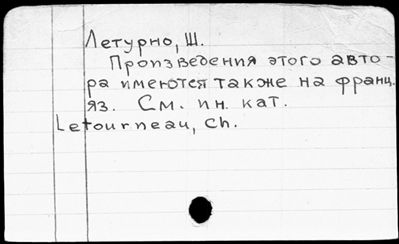 Летурно, Ш.
Произведения этого авто-
ра имеются также на франц.
яз. См. ин. кат.
Letourneau, Ch.